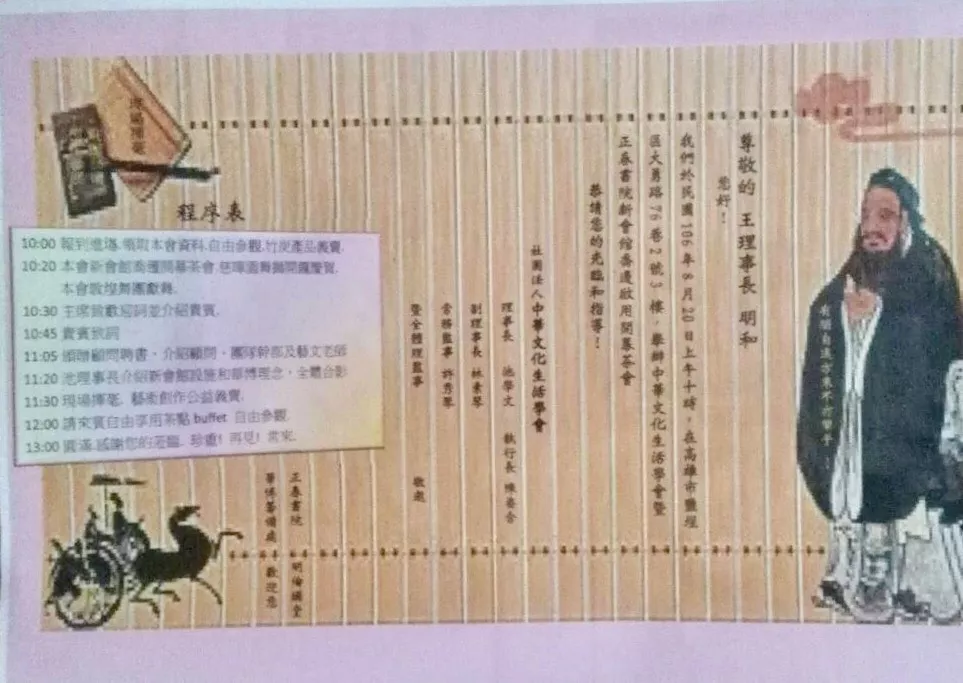 尊敬的 王理事長 明和
您好！
我們於民國106年8月20日上午十時，在高雄市鹽埕
區大勇路76巷2號3樓，舉辦中華文化生活學會暨
正春書院新會館喬遷啟用開幕茶會
恭請您的光臨和指導！
社團法人中華文化生活學會
理事長 池學文 執行長 陳
副理事長 林素琴
常務監事 許秀琴
暨全體理監事 敬邀
正春書院 明倫講堂
籌備處 歡迎您
程序表
10:00 報到進場.領取本會資料.自由參觀.竹炭產品義賣.
10:20 本會新會館喬遷開幕茶會.慈暉園舞獅開鑼慶賀.
本會敦煌舞團獻舞.
10:30 主席致歡迎詞並介紹貴賓.
10:45 貴賓致詞
11:05 頒贈顧問聘書，介紹顧問、團隊幹部及藝文老師
11:20 池理事長介紹新會館設施和理念，全體合影
11:30 現場揮毫. 藝術創作公益義賣.
12:00 請來賓自由享用茶點 buffet 自由參觀.
13:00 圓滿.感謝您的蒞臨. 珍重! 再見! 常來.
有朋自遠方來不亦樂乎